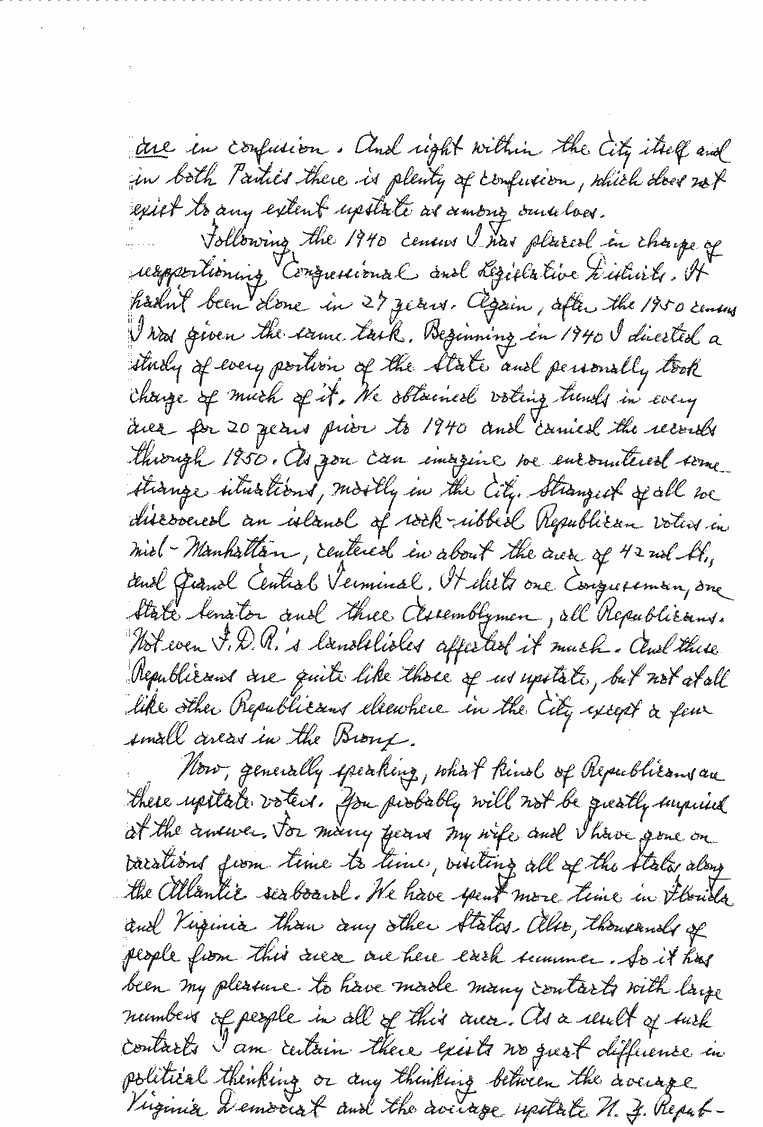 are in confusion. And right within the City itself and
in both Parties there is plenty of confusion, which does not
exist to any extent upstate as among ourselves.
Following the 1940 census I was placed in charge of
reapportioning Congressional and Legislative Districts. It
hadn't been done in 27 years. Again, after the 1950 census
I was given the same task. Beginning in 1940 I directed a
study of every portion of the State and personally took
charge of much of it. We obtained voting trends in every
area for 20 years prior to 1940 and carried the records
through 1950. As you can imagine we encountered some
strange situations, mostly in the City. Strangest of all we
discovered an island of rock-ribbed Republican voters in
mid-Manhattan, centered in about the area of 42nd St.,
and Grand Central Terminal. It elects one Congressman, one
State Senator and three Assemblymen, all Republicans.
Not even F.D.R.'s landslides affected it much. And these
Republicans are quite like those of us upstate, but not at all
like other Republicans elsewhere in the City except a few
small areas in the Bronx.
Now, generally speaking, what kind of Republicans are
these upstate voters. You probably will not be greatly surprised
at the answer. For many years my wife and I have gone on
vacations from time to time, visiting all of the States along
the Atlantic seaboard. We have spent more time in Florida
and Virginia than any other States. Also, thousands of
people from this area are here each summer. So it has
been my pleasure to have made many contacts with large
numbers of people in all of this area. As a result of such
contacts I am certain there exists no great difference in
political thinking or any thinking between the average
Virginia Democrat and the average upstate N.Y. Repub-